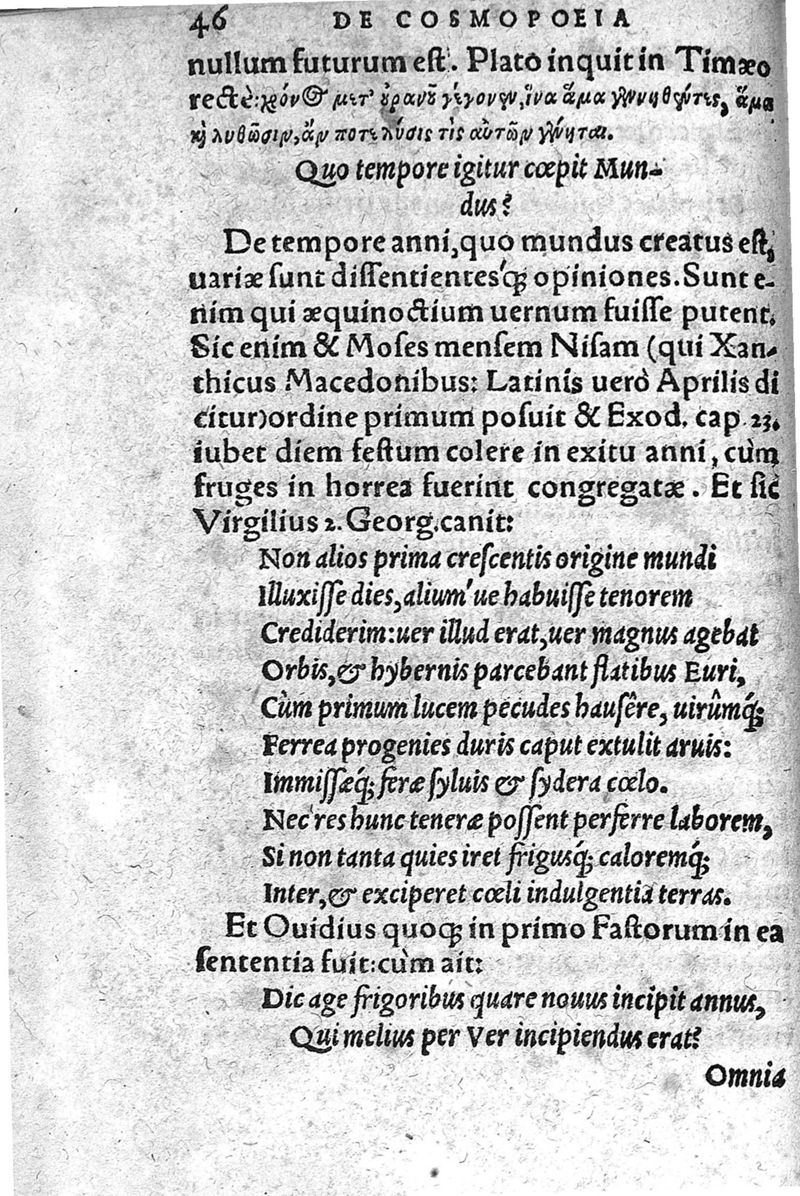 46 DE COSMOPOEIA
nullum futurum est. Plato inquit in Timæo
rectè: χρόνος μετ' οὐρανοῦ γέγονεν, ἵνα ἅμα γεννηθέντες, ἅμα
καὶ λυθῶσιν, ἄν ποτε λύσις τὶς αὐτῶν γένηται.
Quo tempore igitur cœpit Mun-
dus?
De tempore anni, quo mundus creatus est,
uariæ sunt dissentientes'q; opiniones. Sunt e-
nim qui æquinoctium uernum fuisse putent.
Sic enim & Moses mensem Nisam (qui Xan-
thicus Macedonibus: Latinis uerò Aprilis di
citur) ordine primum posuit & Exod. cap. 23.
iubet diem festum colere in exitu anni, cùm
fruges in horrea fuerint congregatæ. Et sic
Virgilius 2. Georg. canit:
Non alios prima crescentis origine mundi
Illuxisse dies, alium'ue habuisse tenorem
Crediderim: uer illud erat, uer magnus agebat
Orbis, & hybernis parcebant flatibus Euri,
Cùm primum lucem pecudes hausêre, uirûmq́;
Ferrea progenies duris caput extulit aruis:
Immissæq́; feræ syluis & sydera cœlo.
Nec res hunc teneræ possent perferre laborem,
Si non tanta quies iret frigusq́; caloremq́;
Inter, & exciperet cœli indulgentia terras.
Et Ouidius quoq; in primo Fastorum in ea
sententia fuit: cùm ait:
Dic age frigoribus quare nouus incipit annus,
Qui melius per Ver incipiendus erat?
Omnia